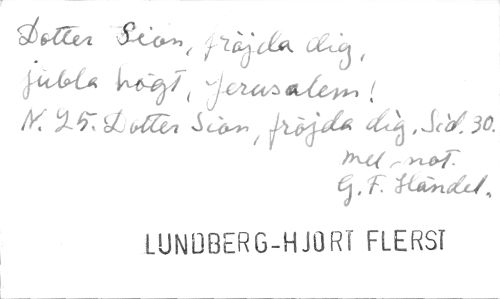 Dotter Sion, fröjda dig,
jubla högt, Jerusalem!
N. 25. Dotter Sion, fröjda dig. Sid. 30.
mel. not.
G. F. Händel.
LUNDBERG-HJORT FLERST